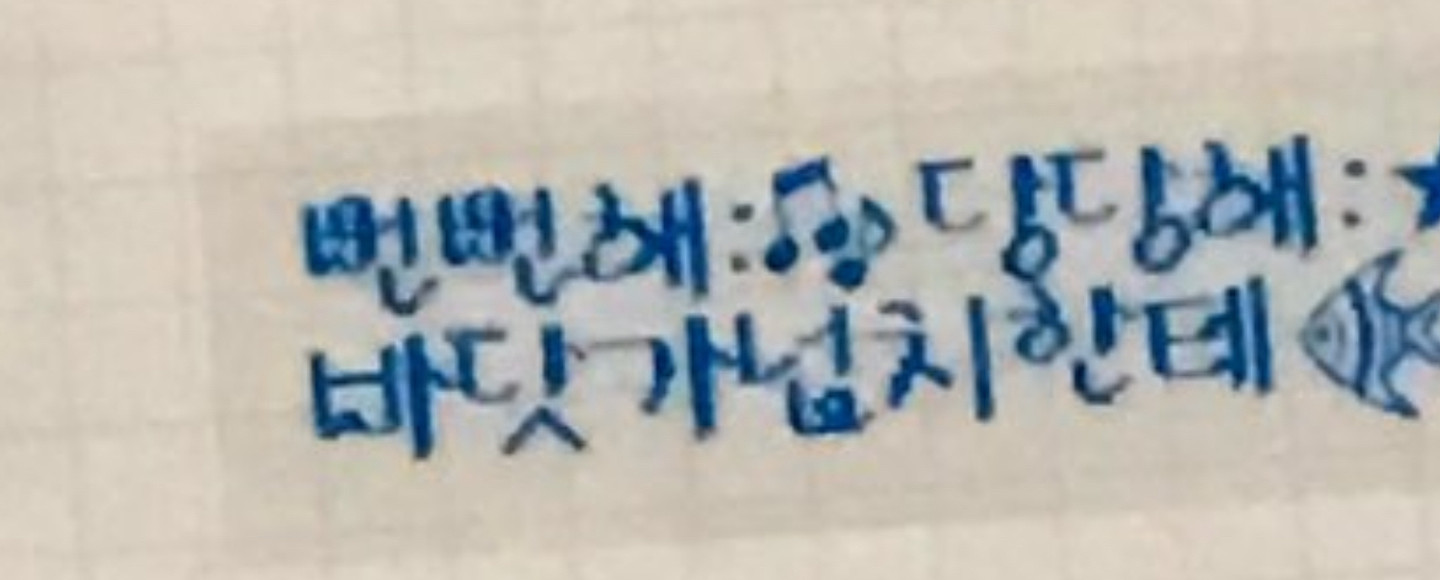 뻔뻔해: 당당해:
바닷가넙치한테